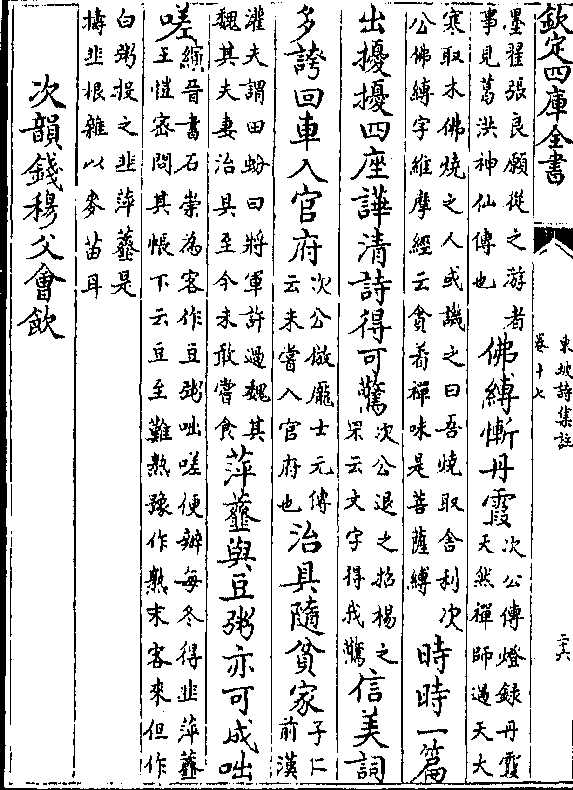 欽定四庫全書
東坡詩集註
卷十七
二十六
墨翟張良願從之游者
事見葛洪神仙傳也
佛縛慚丹霞
次公傳燈錄丹霞
天然禪師過天大
寒取木佛燒之人或譏之曰吾燒取舍利次
公佛縛字維摩經云貪着禪味是菩薩縛
時時一篇
出擾擾四座譁清詩得可驚
次公退之招楊之
罘云文字得我驚
信美詞
多誇回車入官府
次公倣龎士元傳
云未嘗入官府也
治具隨貧家
子仁
前漢
灌夫謂田蚡曰將軍許過魏其
魏其夫妻治具至今未敢嘗食
萍虀與豆粥亦可成咄
嗟
縯晉書石崇為客作豆粥咄嗟便辦每冬得韭萍虀
王愷密問其帳下云豆至難熟豫作熟末客來但作
白粥投之韭萍虀是
擣韭根雜以麥苗耳
次韻錢穆父會飲